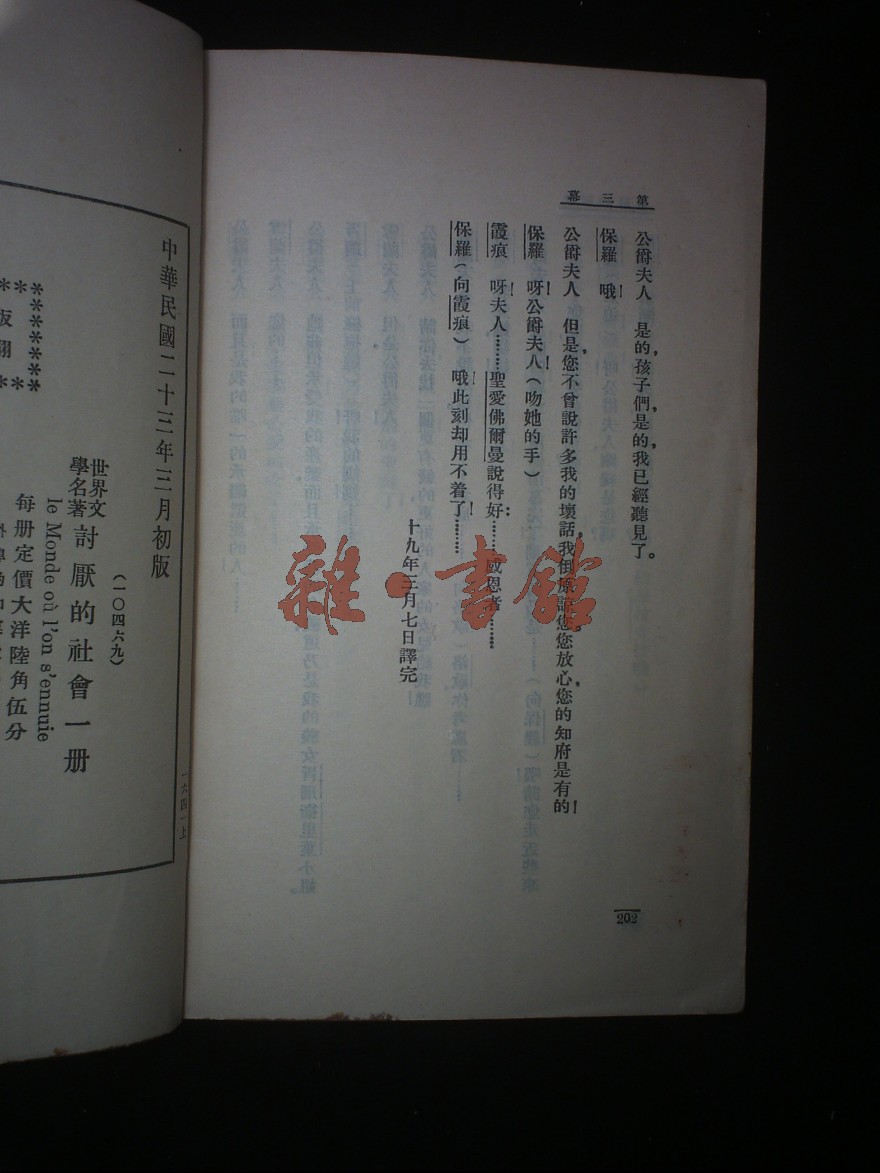 第三幕
公爵夫人　是的，孩子們，是的，我已經聽見了。
保羅　哦！
公爵夫人　但是，您不曾說許多我的壞話，我倒原諒您。您放心，您的知府是有的！
保羅　呀！公爵夫人！（吻她的手）
霞痕　呀！夫人………聖愛佛爾曼說得好：……感恩者………
保羅（向霞痕）　哦！此刻却用不着了！………
十九年三月七日譯完
202
中華民國二十三年三月初版
（一〇四六九）
世界文學名著 討厭的社會一册
le Monde où l'on s'ennuie
每册定價大洋陸角伍分
雜·書館